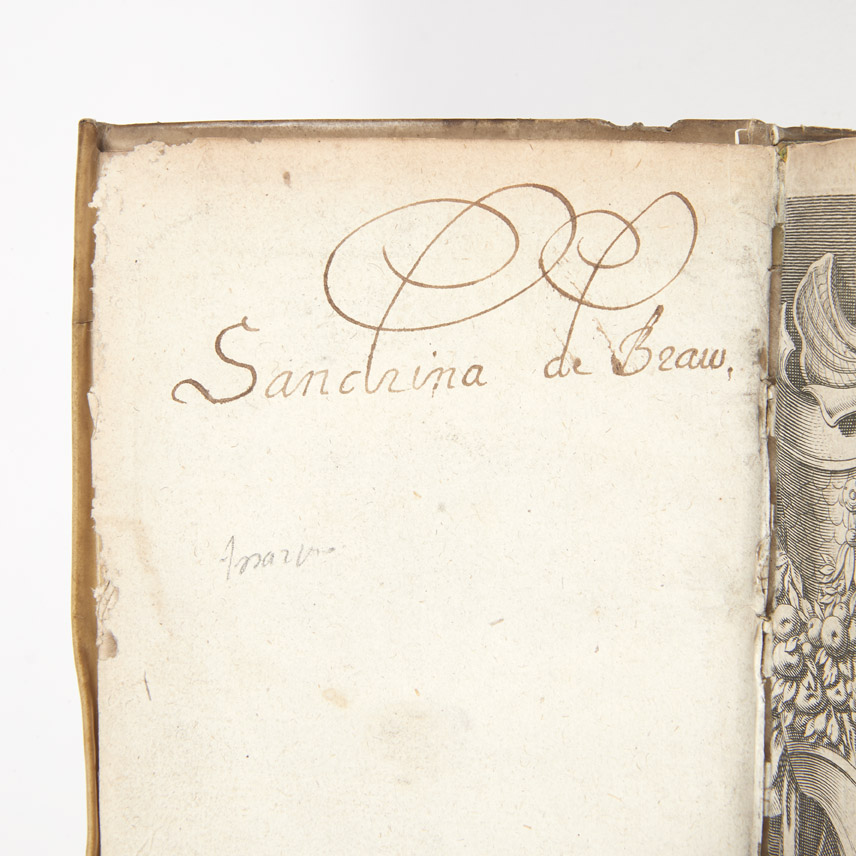 Sandrina de Braw.